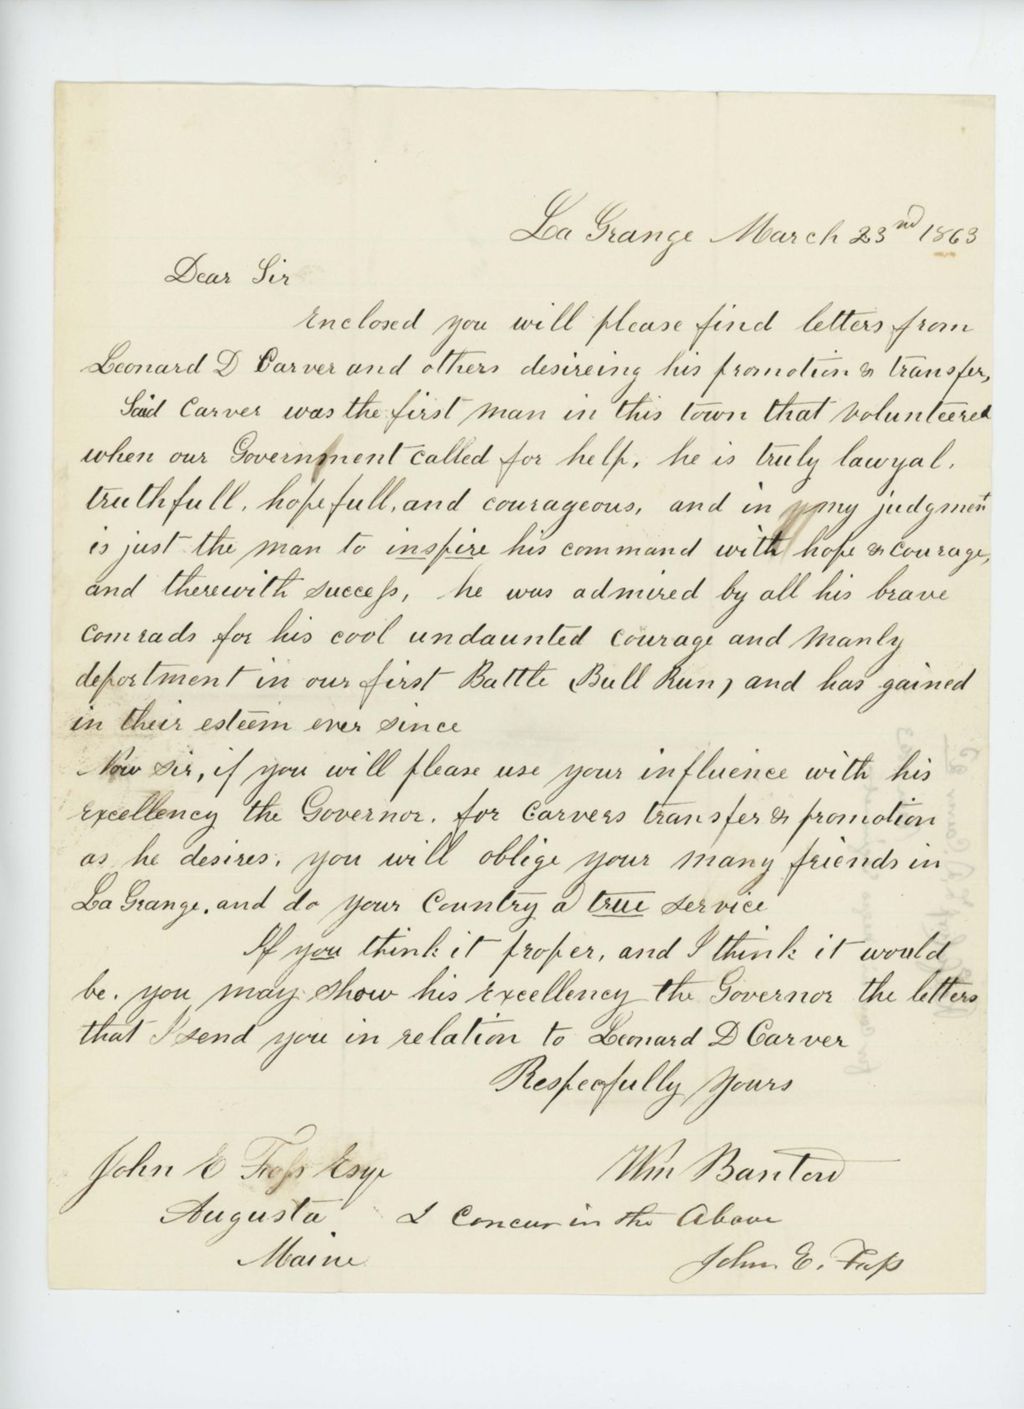 La Grange March 23nd 1863
Dear Sir
Enclosed you will please find letters from
Leonard D Carver and others desireing his promotion & transfer,
Said Carver was the first man in this town that volunteered
when our Government called for help, he is truly lawyal,
truthfull, hopefull, and courageous, and in my judgment
is just the man to inspire his command with hope & courage,
and therewith success, he was admired by all his brave
comrads for his cool undaunted courage and manly
deportment in our first Battle (Bull Run) and has gained
in their esteem ever since
Now sir, if you will please use your influence with his
excellency the Governor, for Carvers transfer & promotion
as he desires, you will oblige your many friends in
La Grange, and do your Country a true service
If you think it proper, and I think it would
be, you may show his Excellency the Governor the letters
that I send you in relation to Leonard D Carver
Respecfully Yours
Wm
John E Foss Esqr
Augusta
Maine
I Concur in the Above
John E. Foss